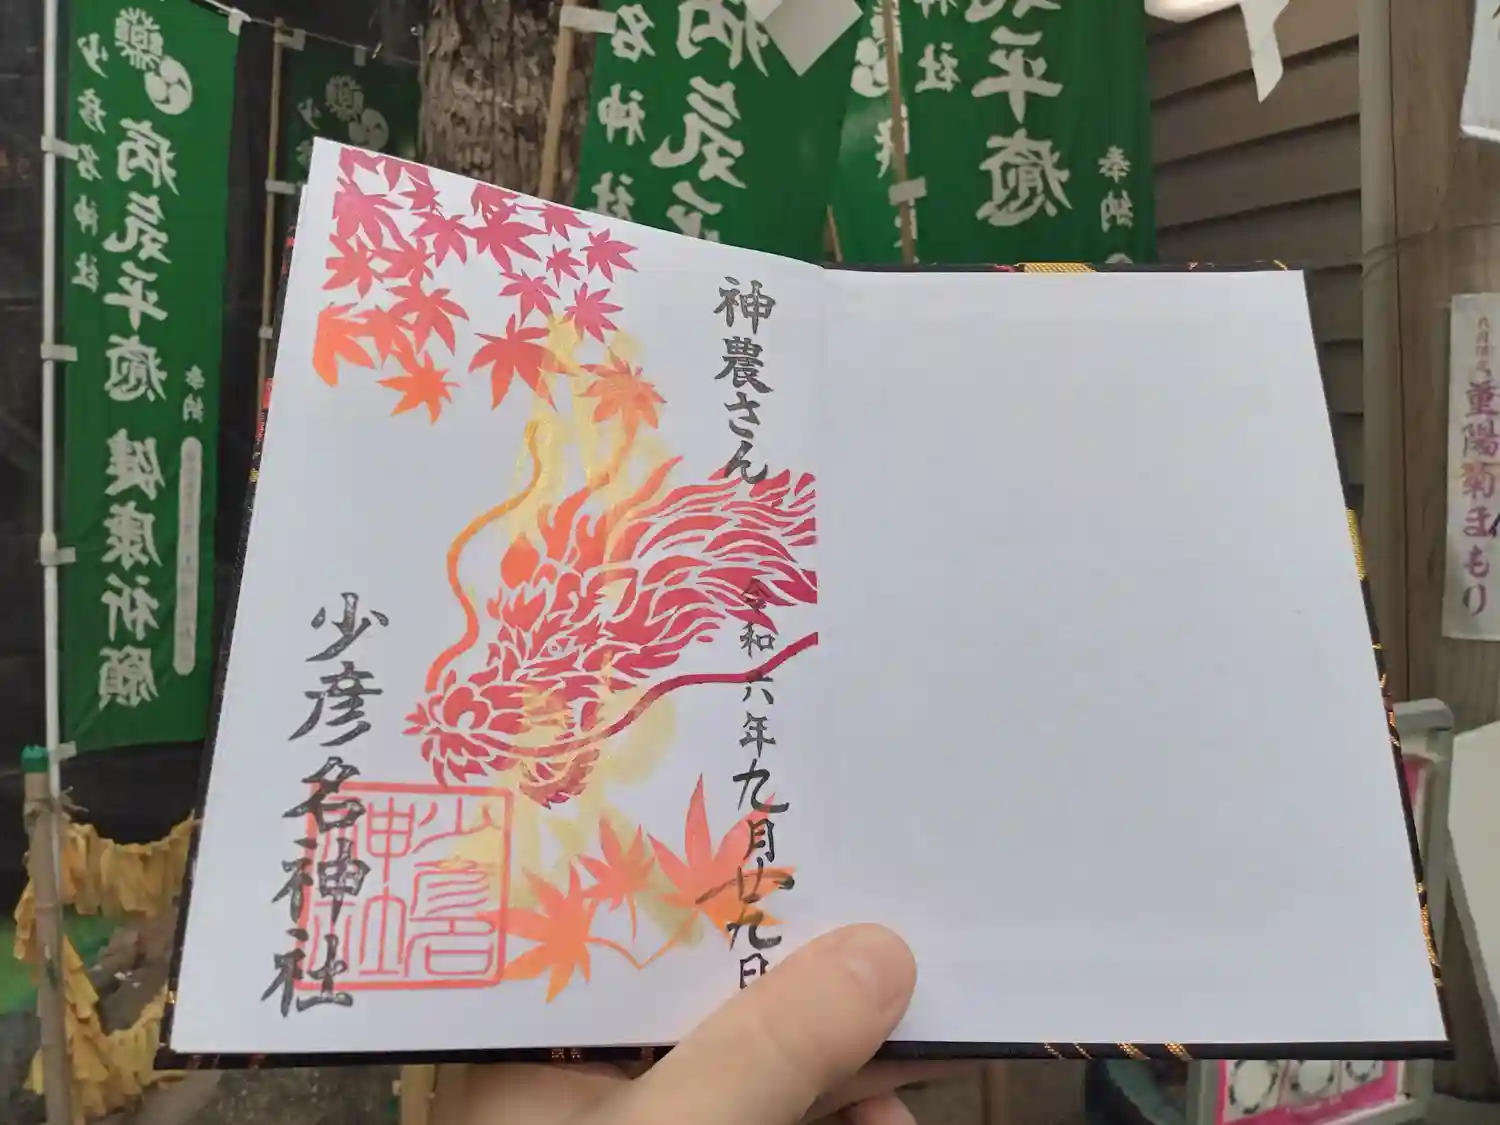 神農さん
令和六年九月廿九日
少彦名神社
少彦名神社
病気平癒 健康祈願
少彦名神社
奉納
薬
病気平
少名神社
気平癒
神社
奉納
重陽菊まもり